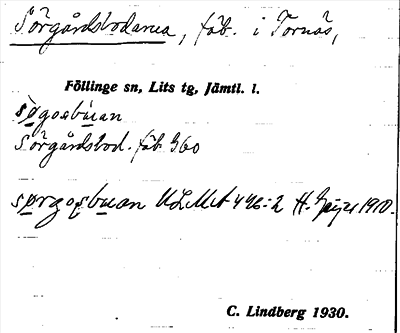 Sörgårdsbodarna, fäb. i Tornäs,
Föllinge sn, Lits tg, Jämtl. l.
søgosbuan
Sörgårdsbod. fäb. G60
sørgosbuan ULMA 446:2 H. Geijer 1910.
C. Lindberg 1930.